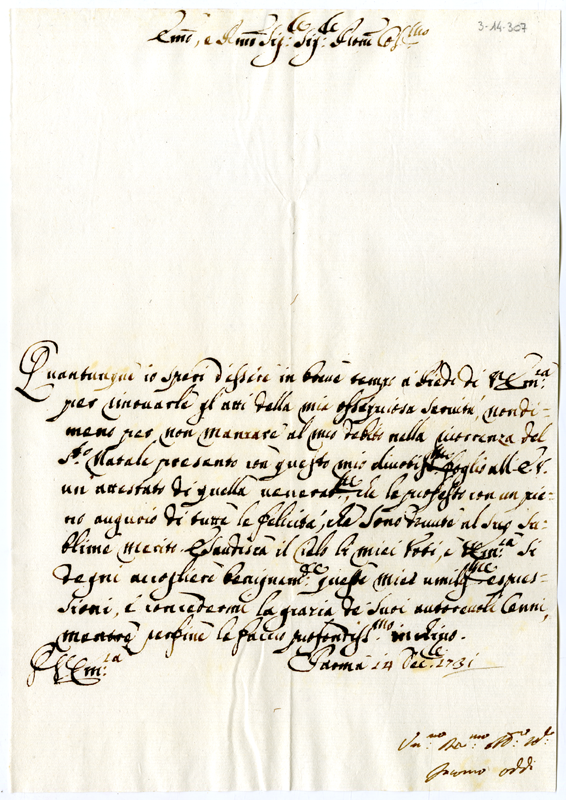 3-14-307
Emo, e Rmo Sig.re Sig.re Pron Colmo
Quantunque io speri d'essere in breve tempo a Piedi di V. Em.za
per rinovarle gl'atti della mia ossequiosa servitù, nondi-
meno per non mancare al mio debito nella ricorrenza del
S.to Natale presento con questo mio divotis.mo foglio all'E.V.
un attestato di quella veneraz.ne, che le professo con un pie-
no augurio di tutte le felicità, che sono dovute al suo Su-
blime merito. Esaudisca il Cielo li miei Voti, e V. Em.za si
degni accogliere benignam.te queste mie umilis.me espres-
sioni, e concedermi la grazia de suoi autorevoli Cenni,
mentre per fine le faccio profondis.mo inchino.
D. V. Em.za
Parma 14 Dec.bre 1731
Um.mo Dev.mo Obb.mo
Giacomo Oddi